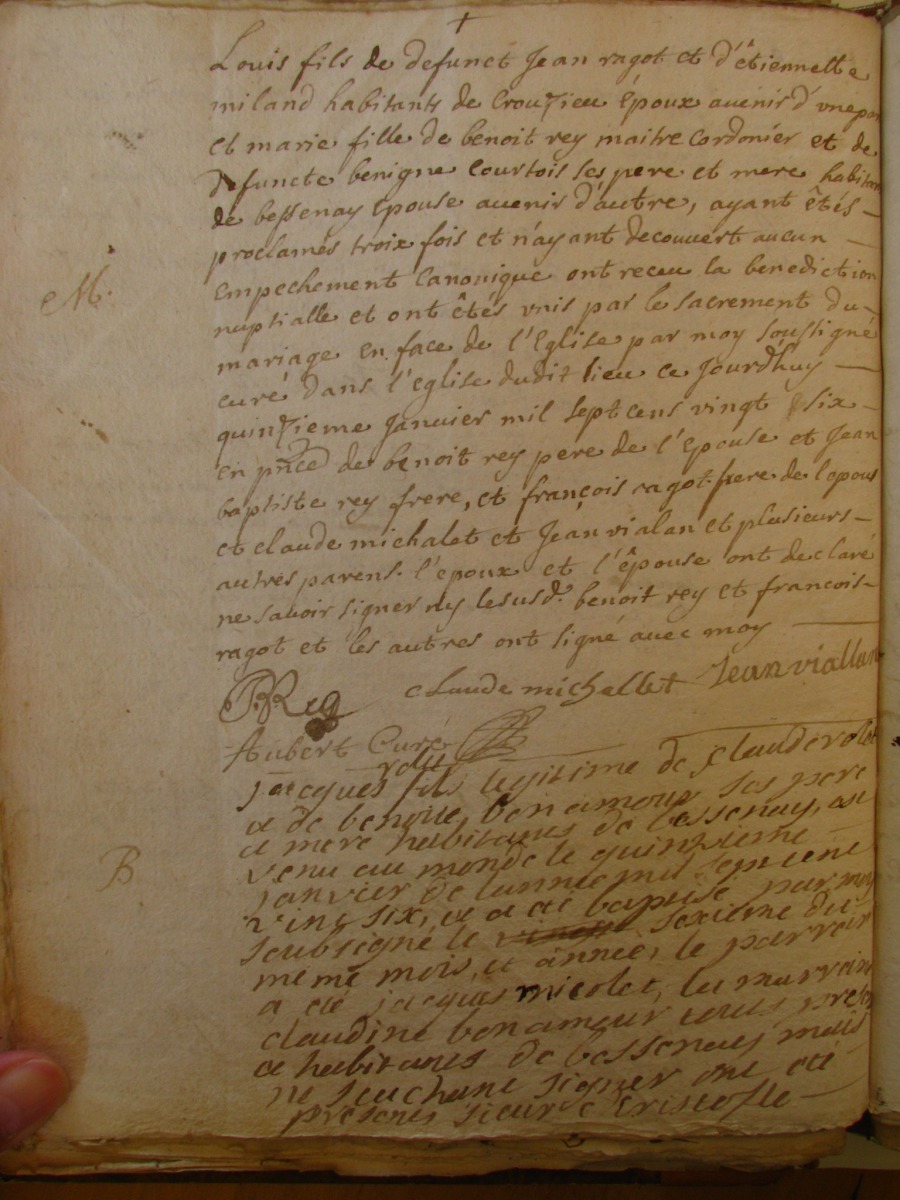 +
Louis fils de defunct Jean ragot et d'étiennette
miland habitants de Crouzieu Epoux auenir d'vne par
et marie fille de benoit rey maitre cordonier et de
defuncte benigne courtois ses pere et mere habitan
de bessenay Epouse auenir d'autre, ayant êtés
proclamés troix fois et n'ayant decouvert aucun
M. empechement Canonique ont receu la benediction
nuptialle et ont êtés vnis par le sacrement du
mariage en face de l'Eglise par moy soussigné
curé dans l'eglise dudit lieu ce jourdhuy
quinzieme januier mil sept cens vingt six
en pñce de benoit rey pere de l'Epouse et Jean
baptiste rey frere, et françois ragot frere de lepous
et claude michalet et Jean vialan et plusieurs
autres parens. l'epoux et l'épouse ont declaré
ne sauoir signer ny lesusd. benoit rey et francois
ragot et les autres ont signé auec moy
BRey claude michallet Jean viallan
Aubert Curé
jacques fils legitime de claude
et de benoite bonamour ses pere
et mere habitants de bessenay, est
B venu au monde le quinzieme
janvier de lannee mil sept cent
vingt six, et a eté baptisé par moy
soubsegné le sexieme du
meme mois, et annee, le parrein
a eté jacques micolet, la marraine
claudine bonamour touts
et habitants de bessenay mais
ne scachant signer ont eté
presents sieur Cristofle